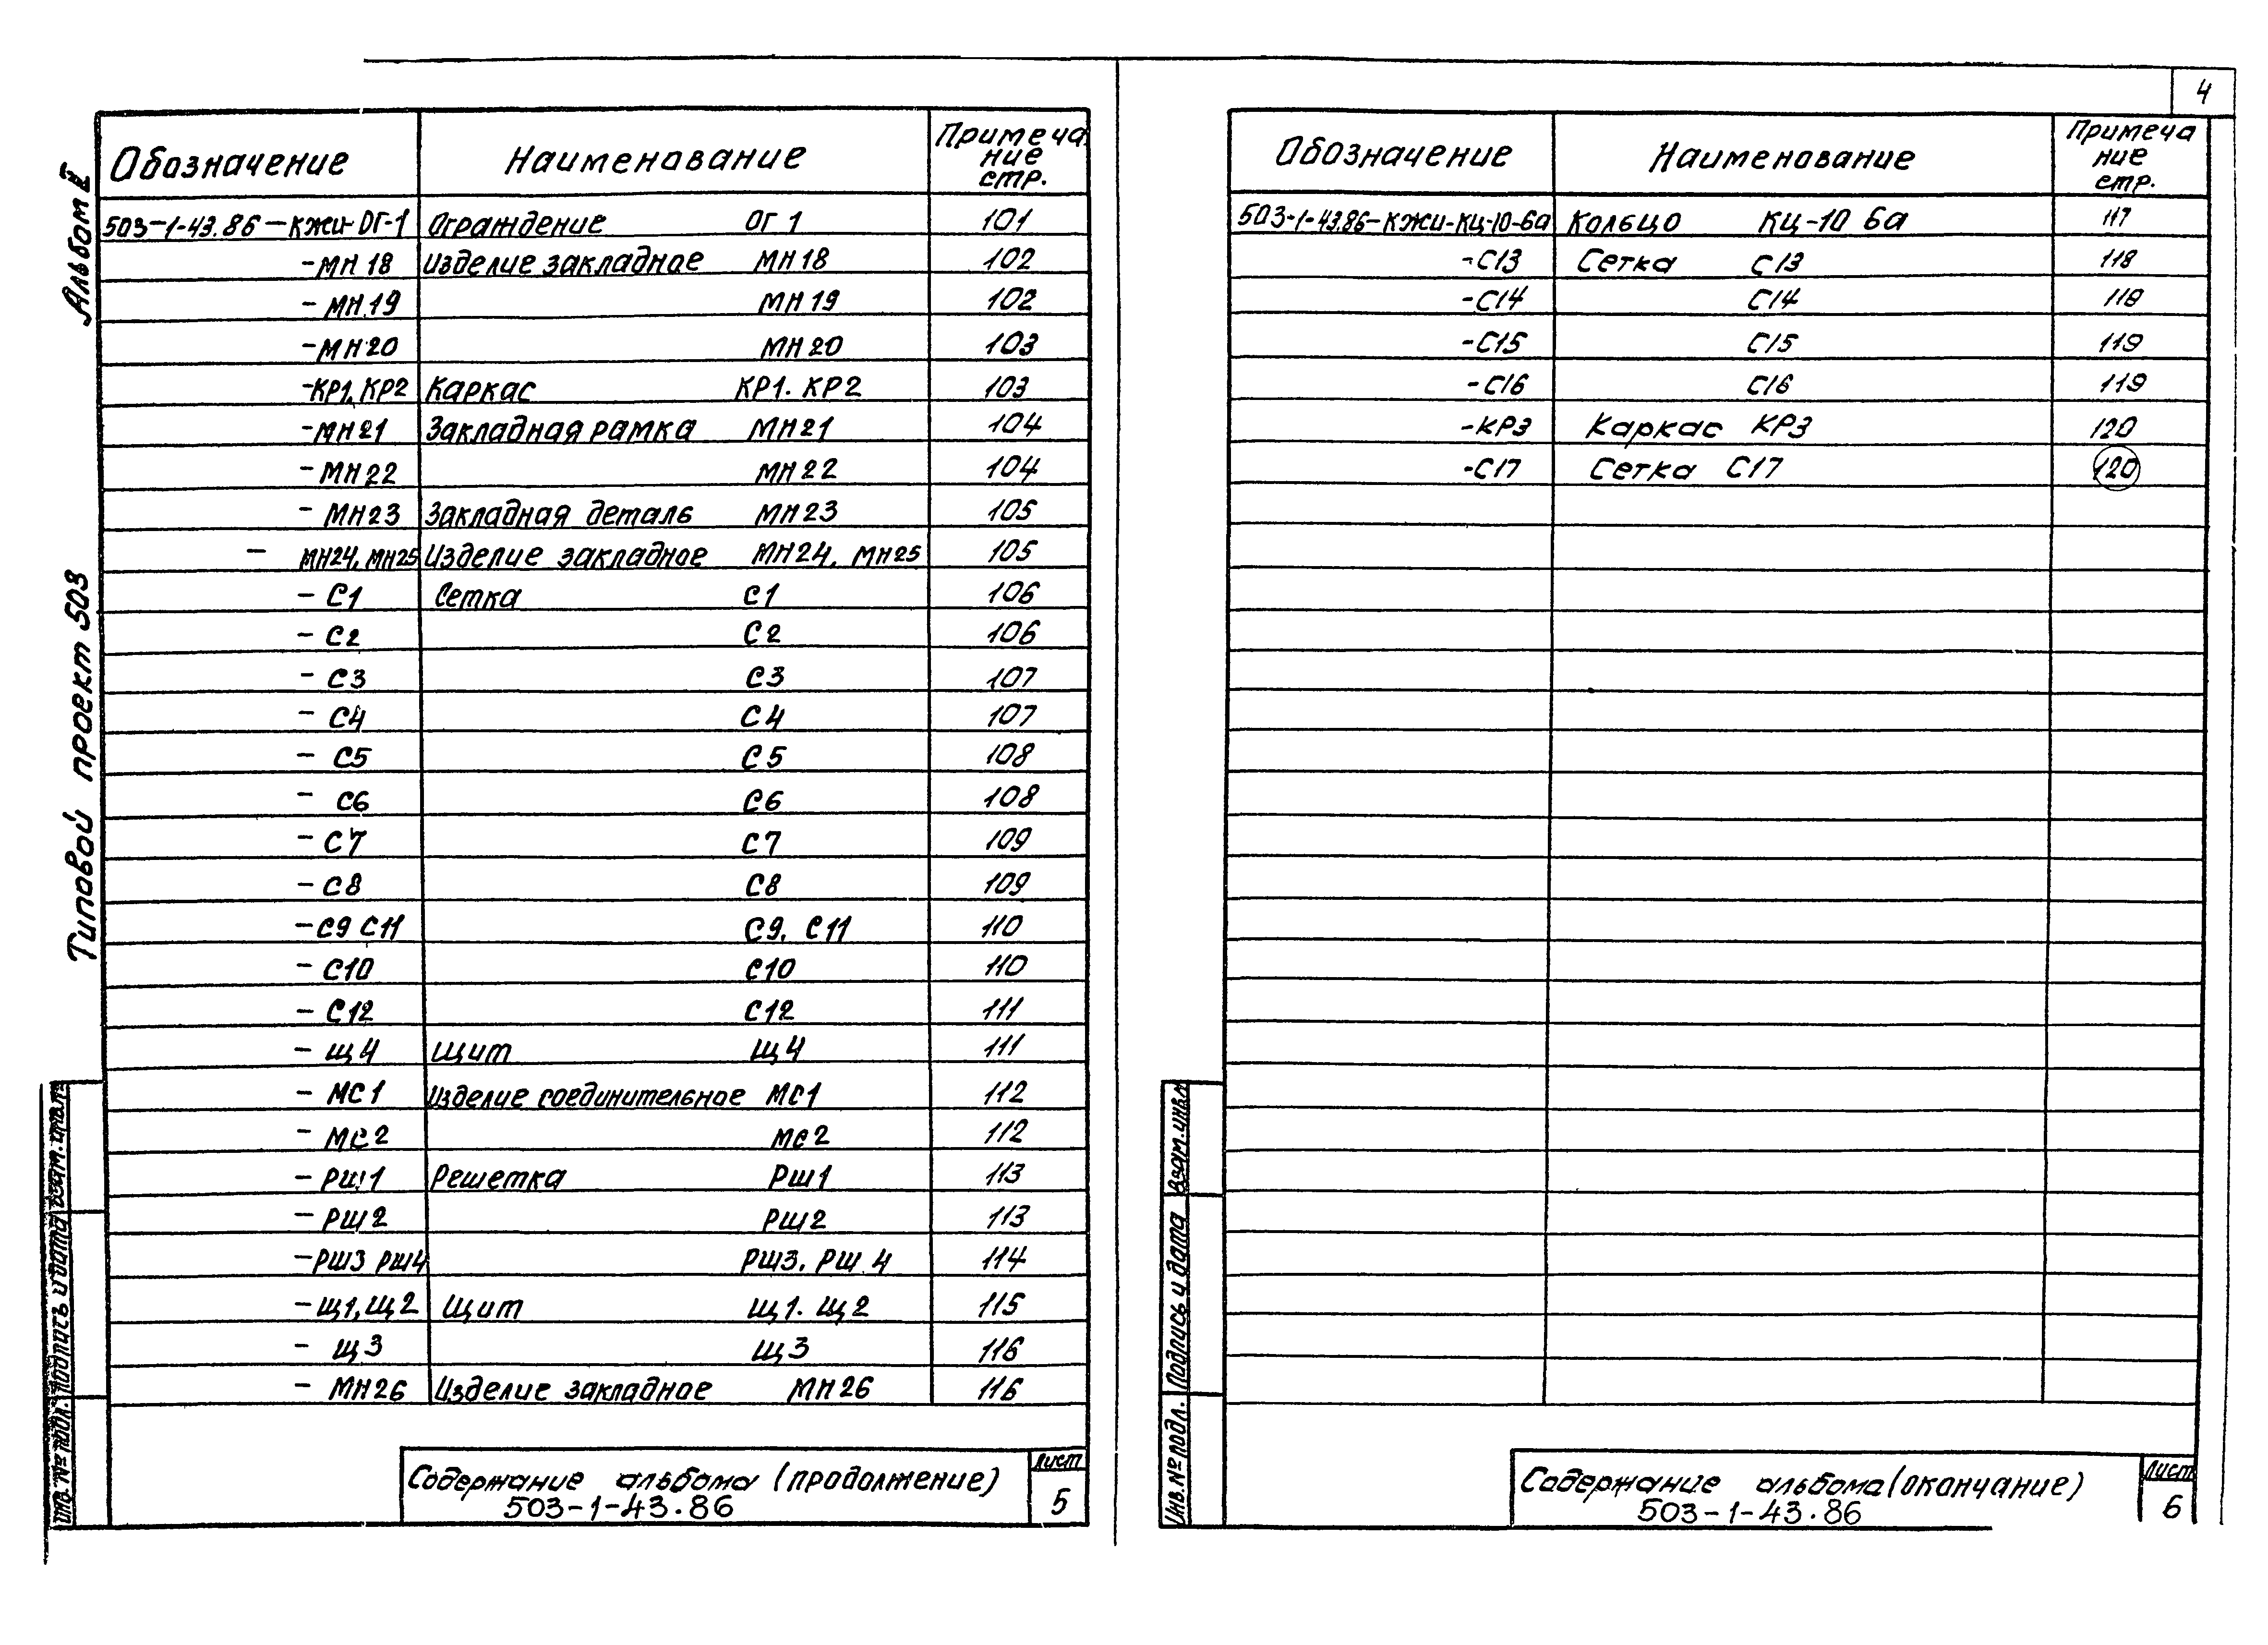 4
Альбом II
Типовой проект 503
Обозначение Наименование Примеча ние стр.
503-1-43.86-КЖИ-ОГ-1 Ограждение ОГ 1 101
-МН 18 Изделие закладное МН 18 102
- МН 19 МН 19 102
-МН 20 МН 20 103
-КР1, КР2 Каркас КР1. КР2 103
-МН21 Закладная рамка МН21 104
- МН 22 МН 22 104
- МН23 Закладная деталь МН23 105
- МН24, МН25 Изделие закладное МН24, МН25 105
- С1 Сетка С1 106
- С2 С2 106
- С3 С3 107
- С4 С4 107
- С5 С5 108
- С6 С6 108
- С7 С7 109
- С8 С8 109
- С9 С11 С9, С11 110
- С10 С10 110
- С12 С12 111
- Щ4 Щит Щ4 111
- МС1 Изделие соединительное МС1 112
- МС2 МС2 112
- РШ1 Решетка РШ1 113
- РШ2 РШ2 113
- РШ3 РШ4 РШ3. РШ 4 114
- Щ1, Щ2 Щит Щ1. Щ2 115
- Щ3 Щ3 116
- МН26 Изделие закладное МН26 116
Инв. № подл. Подпись и дата Взам. инв. №
Содержание альбома (продолжение)
503-1-43.86
Лист
5
Обозначение Наименование Примеча ние стр.
503-1-43.86-КЖИ-КЦ-10-6а Кольцо КЦ-10 6а 117
-С13 Сетка С13 118
-С14 С14 118
-С15 С15 119
-С16 С16 119
-КР3 Каркас КР3 120
-С17 Сетка С17 120
Инв. № подл. Подпись и дата Взам. инв. №
Содержание альбома (окончание)
503-1-43.86
Лист
6